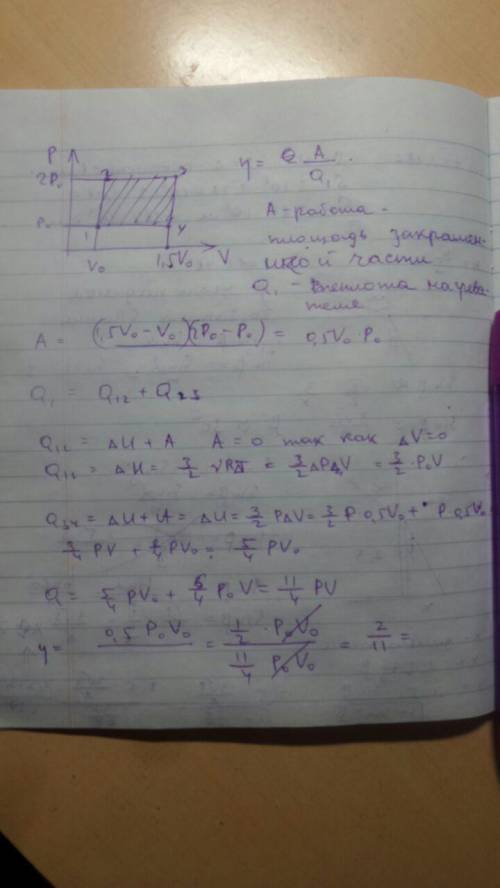 P
2P₀ 2 3
P₀ 1 4
V₀ 1,5V₀ V
η = A / Q₁
A - работа -
площадь закрашен-
нной части
Q₁ - теплота нагрева-
теля
A = (1,5V₀ - V₀)(2P₀ - P₀) = 0,5V₀ · P₀
Q₁ = Q₁₂ + Q₂₃
Q₁₂ = ΔU + A A = 0 так как ΔV=0
Q₁₂ = ΔU = 3/2 νRΔT = 3/2 ΔPΔV = 3/2 · P₀V
Q₃₄ = ΔU + A = ΔU = 3/2 PΔV = 3/2 P · 0,5V₀ + P 0,5V₀
3/4 PV + 2/4 PV₀ = 5/4 PV₀
Q = 5/4 PV₀ + 6/4 P₀V = 11/4 PV
η = 0,5 P₀V₀ = 1/2 · P₀V₀ / 11/4 P₀V₀ = 2/11 =